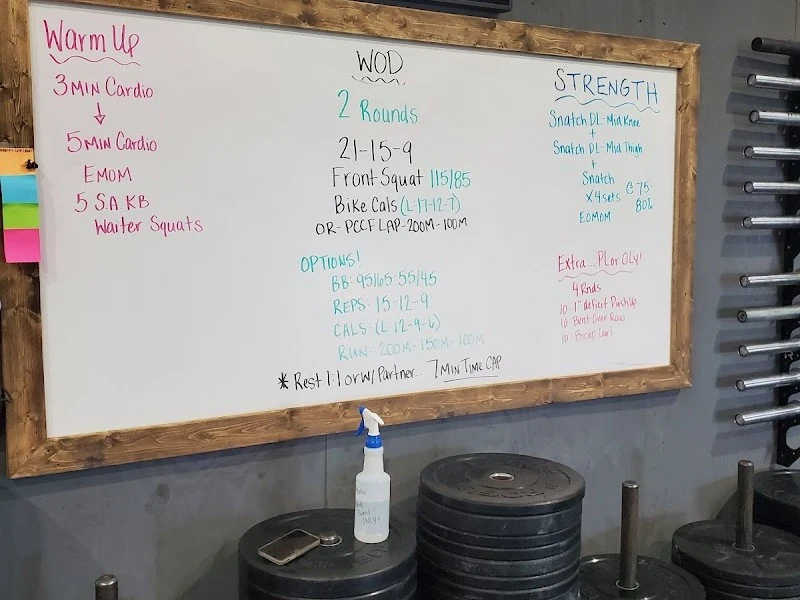 Warm Up
3 MIN Cardio
↓
5 MIN Cardio
EMOM
5 S.A. KB
Waiter Squats
WOD
2 Rounds
21-15-9
Front Squat 115/85
Bike Cals (L:17-12-7)
OR- PCCF LAP-200M-100M
OPTIONS!
BB: 95/65-55/45
REPS: 15-12-9
CALS: (L:12-9-6)
RUN: 200M-150M-100M
* Rest 1:1 or w/ Partner... 7 Min Time CAP
STRENGTH
Snatch DL-Mid Knee
+
Snatch DL-Mid Thigh
+
Snatch
X4sets @ 75-
80%
EOMOM
Extra... PL or OLY!
4 Rnds
10-1" deficit Push Up
10 Bent Over Row
10 Bicep Curl
ONLY!!